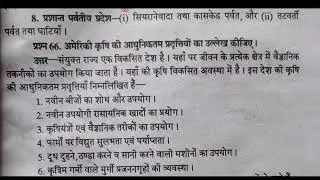 8. प्रशान्त पर्वतीय प्रदेश–(i) सियरानेवादा तथा कासकेड पर्वत, और (ii) तटवर्ती
पर्वत तथा घाटियाँ।
प्रश्न 66. अमेरिकी कृषि की आधुनिकतम प्रवृत्तियों का उल्लेख कीजिए।
उत्तर—संयुक्त राज्य एक विकसित देश है। यहाँ पर जीवन के प्रत्येक क्षेत्र में वैज्ञानिक
तकनीकों का उपयोग किया जाता है। यहाँ की कृषि विकसित अवस्था में है। इस देश की कृषि
की आधुनिकतम प्रवृत्तियाँ निम्नलिखित हैं—
1. नवीन बीजों का शोध और उपयोग।
2. नवीन उपयोगी रासायनिक खादों का प्रयोग।
3. कृषियंत्रों एवं वैज्ञानिक तरीकों का उपयोग।
4. फार्मों पर विद्युत सुलभता एवं पर्याप्तता।
5. दूध दुहने, ठण्डा करने व सानी करने वाली मशीनों का उपयोग।
6. कृत्रिम गर्मी वाले मुर्गी प्रजननगृहों की व्यवस्था।